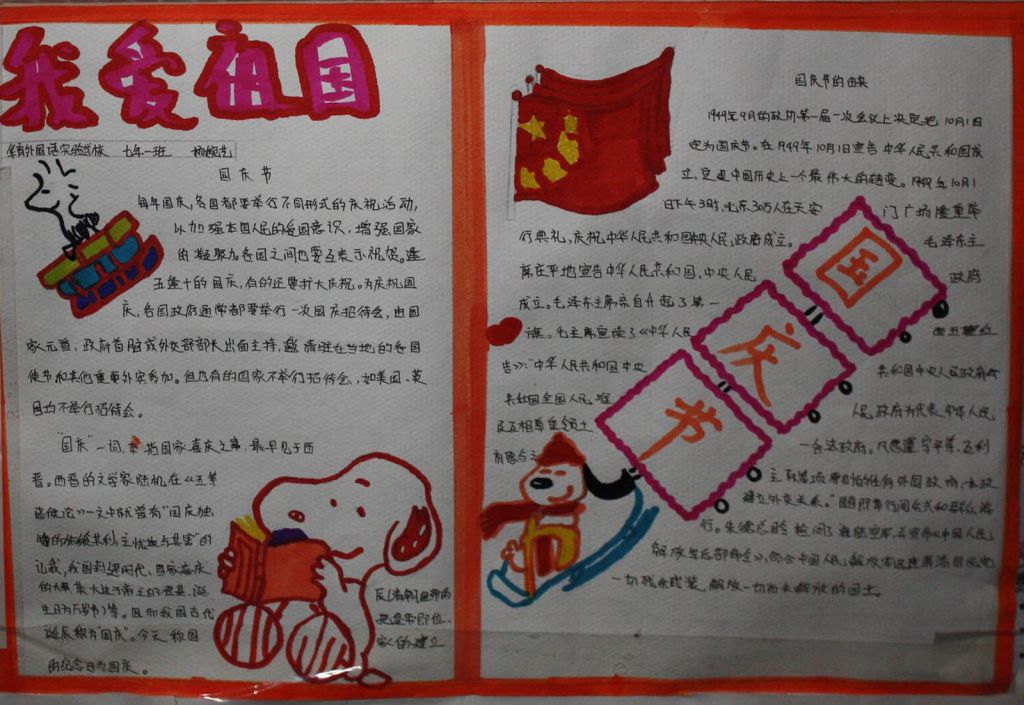 我爱祖国
外国语实验学校 七年一班
国庆节
每年国庆,各国都要举行不同形式的庆祝活动,
以加强本国人民的爱国意识,增强国家
的凝聚力。各国之间也要互表示祝贺。逢
五逢十的国庆,有的还要扩大庆祝。为庆祝国
庆,各国政府通常都要举行一次国庆招待会,由国
家元首,政府首脑或外交部部长出面主持,邀请驻在当地的各国
使节和其他重要外宾参加。但也有的国家不举行招待会,如美国、英
国均不举行招待会。
“国庆”一词,本指国家喜庆之事,最早见于西
晋。西晋的文学家陆机在《五等
诸侯论》一文中就曾有“国庆独
飨其利,主忧莫与其害”的
记载,我国封建时代、国家喜庆
的大事,莫大过于帝王的登基、诞
辰(清朝
生日为万岁节)等。因而我国古代把皇帝即位、
诞辰称为“国庆”。今天称国家的建立
的纪念日为国庆。
国庆节的由来
1949年9月的政协第一届一次会议上决定把10月1日
定为国庆节。在1949年10月1日宣告中华人民共和国成
立,这是中国历史上一个最伟大的转变。1949年10月1
日下午3时,北京30万人在天安门广场隆重举
行典礼,庆祝中华人民共和国中央人民政府成立。毛泽东主
席庄严地宣告中华人民共和国,中央人民政府
成立。毛泽东主席亲自升起了第一面五星红
旗。毛主席宣读了《中华人民共和国中央人民政府
告》:“中华人民共和国中央人民政府为代表中华人民
共和国全国人民唯一合法政府。凡愿遵守平等、互利
及互相尊重领土主权等项原则的任何外国政府,本政
府愿与之建立外交关系。”随即举行阅兵式和群众游
行。朱德总司令检阅了海陆空军,并宣布《中国人民
解放军总部命令》,命令中国人民解放军迅速肃清国民党
一切残余武装,解放一切尚未解放的国土。
国
庆
节